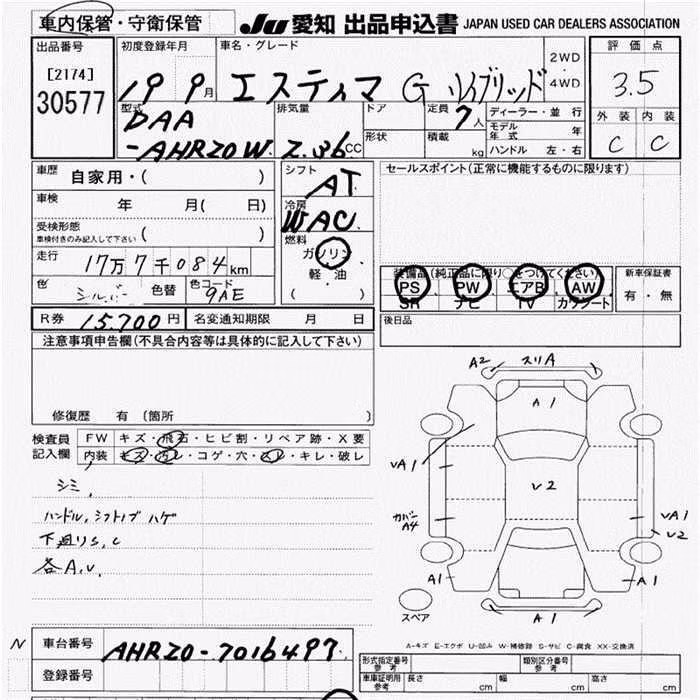 車内保管・守衛保管
JU 愛知 出品申込書 JAPAN USED CAR DEALERS ASSOCIATION
出品番号
[2174]
30577
初度登録年月
19 9月
車名・グレード
エスティマ G ハイブリッド
2WD・4WD
評価点
3.5
外装 内装
C C
型式
DAA
-AHR20W
排気量
2.36CC
ドア
形状
定員
7人
積載
kg
ディーラー・並行
モデル年式 年
ハンドル 左・右
車歴
自家用・( )
車検
年 月( 日)
受検形態
車検付きのみ記入して下さい ( )
走行
17万7千084km
色 シルバー 色替 色コード 9AE
シフト
AT
冷房
WAC
燃料
ガソリン
軽・油
( )
セールスポイント(正常に機能するものに限ります)
装備品(純正品に限り○をつけてください)
PS PW エアB AW
SR ナビ TV カワシート
新車保証書
有・無
R券 15,700円 名変通知期限 月 日
後日品
注意事項申告欄(不具合内容等は具体的に記入して下さい)
修復歴 有 〔箇所 〕
検査員
記入欄
FW キズ・飛石・ヒビ割・リペア跡・X要
内装 キズ・汚レ・コゲ・穴・スレ・キレ・破レ
シミ,
ハンドル,シフトノブ ハゲ
下廻りS,C
各A,U,
A2 スリA
A1
UA1
U2
カバーA4
UA1
U2
A1
A1
A1
スペア
A-キズ E-エクボ U-凹み W-補修跡 S-サビ C-腐食 XX-交換済
N 車台番号 AHR20-7016497
登録番号
形式指定番号
参考
類別区分番号
参考
車庫証明用
参考
長さ cm 幅 cm 高さ cm